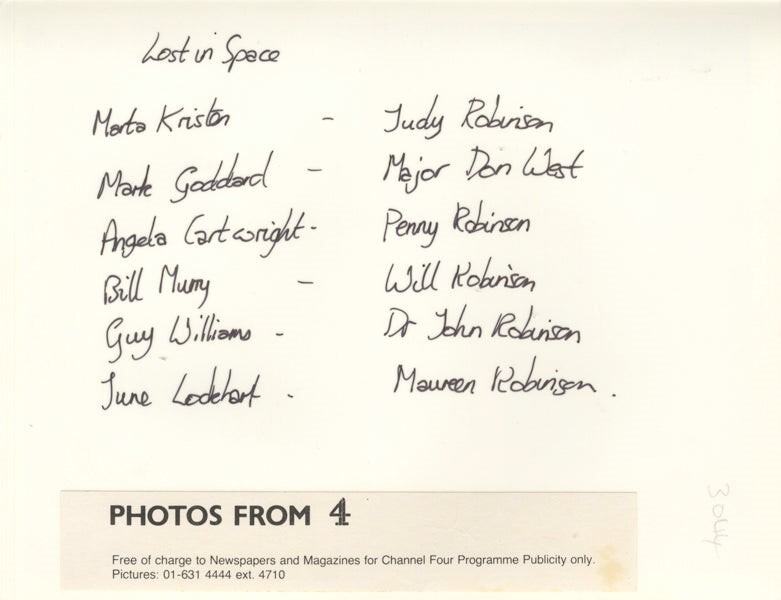 Lost in Space
Marta Kristen - Judy Robinson
Mark Goddard - Major Don West
Angela Cartwright - Penny Robinson
Bill Mumy - Will Robinson
Guy Williams - Dr John Robinson
June Lockhart - Maureen Robinson.
PHOTOS FROM 4
Free of charge to Newspapers and Magazines for Channel Four Programme Publicity only.
Pictures: 01-631 4444 ext. 4710